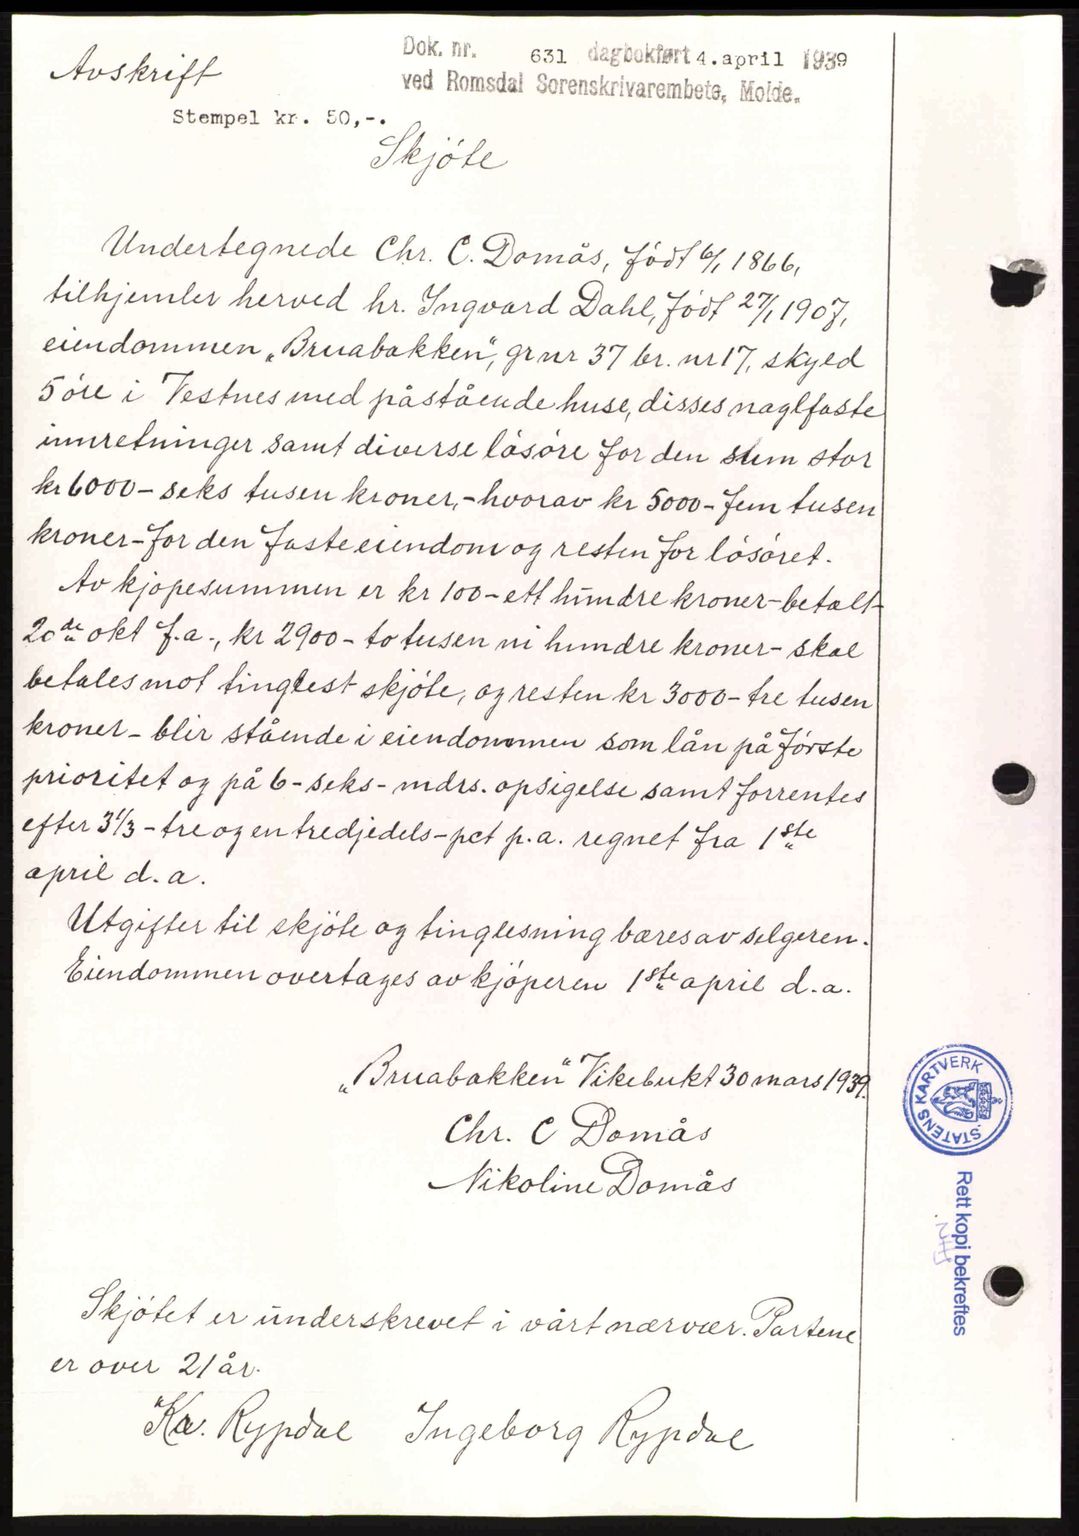 Avskrift
Dok. nr. 631 dagbokført 4. april 1939
ved Romsdal Sorenskrivarembete, Molde.
Stempel kr. 50,-.
Skjöte
Undertegnede Chr. C. Domås, født 6/1 1866,
tilhjemler herved hr. Ingvard Dahl, født 27/1 1907,
eiendommen „Bruabakken“, gr nr 37 br. nr 17, skyld
5 öre i Vestnes med påstående huse, disses naglfaste
innretninger samt diverse lösöre for den sum stor
kr 6000 - seks tusen kroner, - hvorav kr 5000 - fem tusen
kroner - for den faste eiendom og resten for lösöret.
Av kjöpesummen er kr 100 - ett hundre kroner - betalt
20de okt f.a., kr 2900 - to tusen ni hundre kroner - skal
betales mot tinglest skjöte, og resten kr 3000 - tre tusen
kroner - blir stående i eiendommen som lån på förste
prioritet og på 6 - seks - mdrs. opsigelse samt forrentes
efter 3 1/3 - tre og en tredjedels - pct p.a. regnet fra 1ste
april d.a.
Utgifter til skjöte og tinglesning bæres av selgeren.
Eiendommen overtages av kjöperen 1ste april d.a.
„Bruabakken“ Vikebukt 30 mars 1939.
Chr. C Domås
Nikoline Domås
Skjötet er underskrevet i vårt nærvær. Partene
er over 21 år.
Kr. Rypdal Ingeborg Rypdal
STATENS KARTVERK
Rett kopi bekreftes